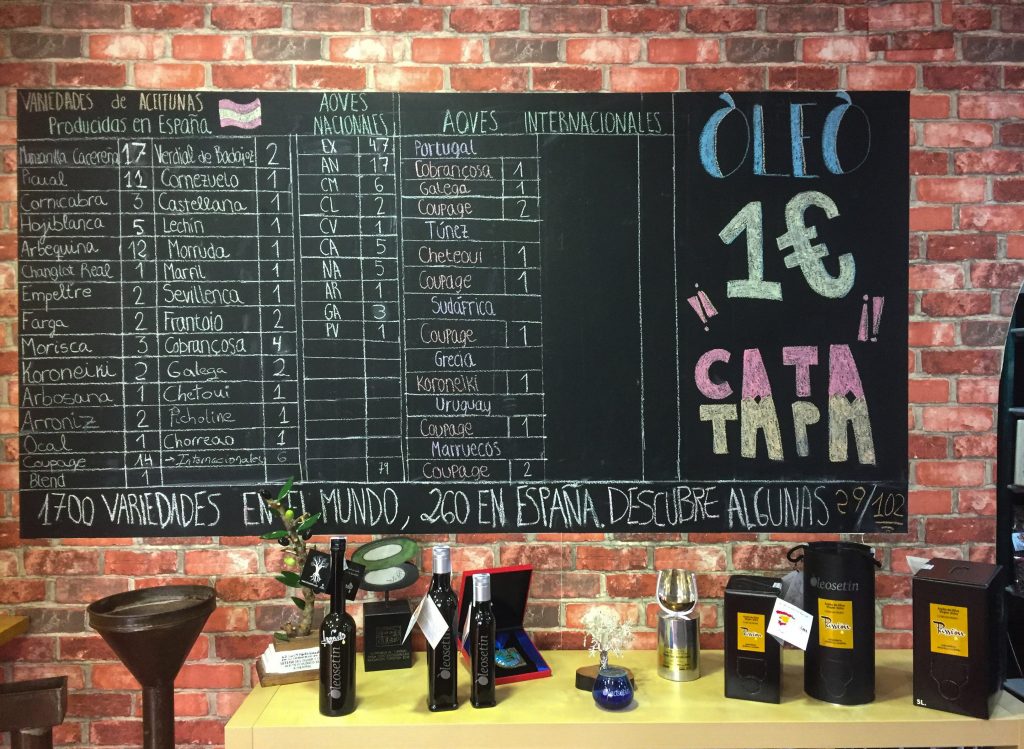 VARIEDADES de ACEITUNAS
Producidas en España
Manzanilla Cacereña 17
Picual 11
Cornicabra 3
Hojiblanca 5
Arbequina 12
Changlot Real 1
Empeltre 2
Farga 2
Morisca 3
Koroneiki 2
Arbosana 1
Arroniz 2
Ocal 1
Coupage 14
Blend 1
Verdial de Badajoz 2
Cornezuelo 1
Castellana 1
Lechin 1
Morruda 1
Marfil 1
Sevillenca 1
Frantoio 2
Cobrançosa 4
Galega 2
Chetoui 1
Picholine 1
Chorreao 1
→ Internacionales 6
AOVES
NACIONALES
EX 47
AN 17
CM 6
CL 2
CV 1
CA 5
NA 5
AR 1
GA 3
PV 1
79
AOVES INTERNACIONALES
Portugal
Cobrançosa 1
Galega 1
Coupage 2
Túnez
Cheteoui 1
Coupage 1
Sudáfrica
Coupage 1
Grecia
Koroneiki 1
Uruguay
Coupage 1
Marruecos
Coupage 2
ÒLEÒ
1€
¡¡ !!
CATA
TAPA
1700 VARIEDADES EN EL MUNDO, 260 EN ESPAÑA. DESCUBRE ALGUNAS 29/102
Oleosetin
Oleosetin
Oleosetin
Oleosetin
Passion
Passion
Passion
5L.